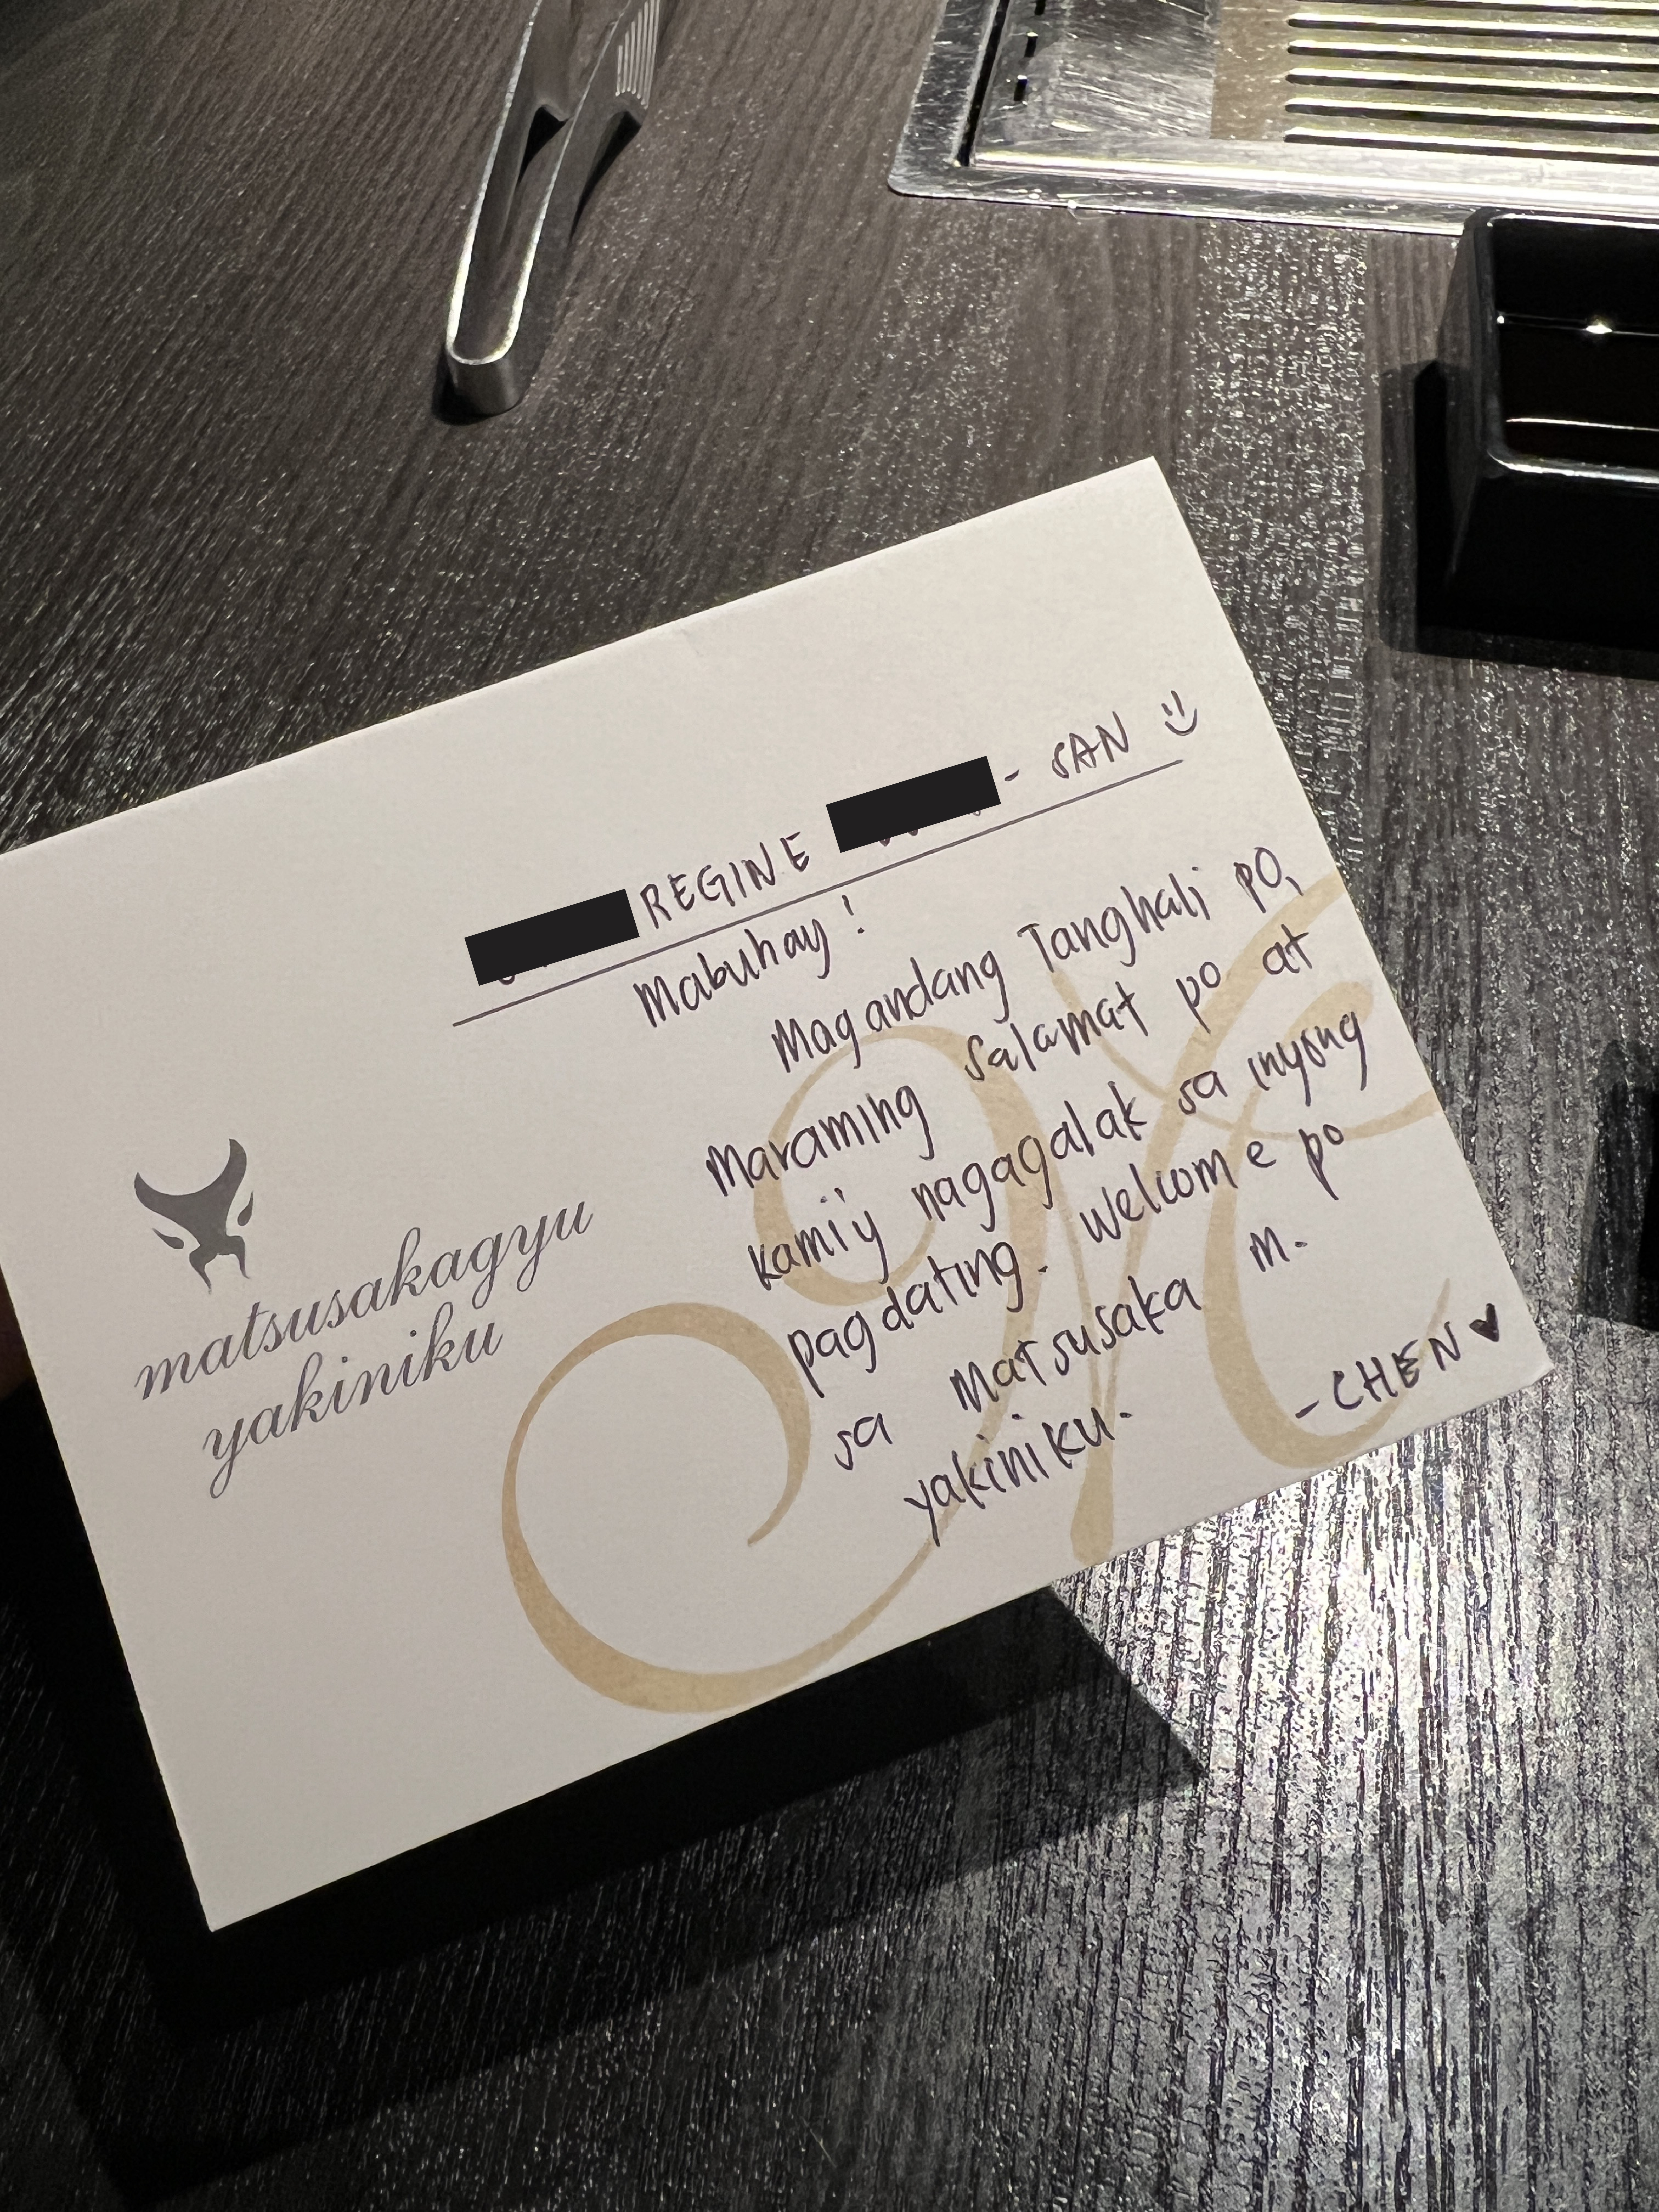 REGINE - SAN
Mabuhay!
Magandang Tanghali po,
Maraming salamat po at
kami'y nagagalak sa inyong
pagdating. Welcome po
sa Matsusaka M.
yakiniku.
- CHEN
matsusakagyu
yakiniku